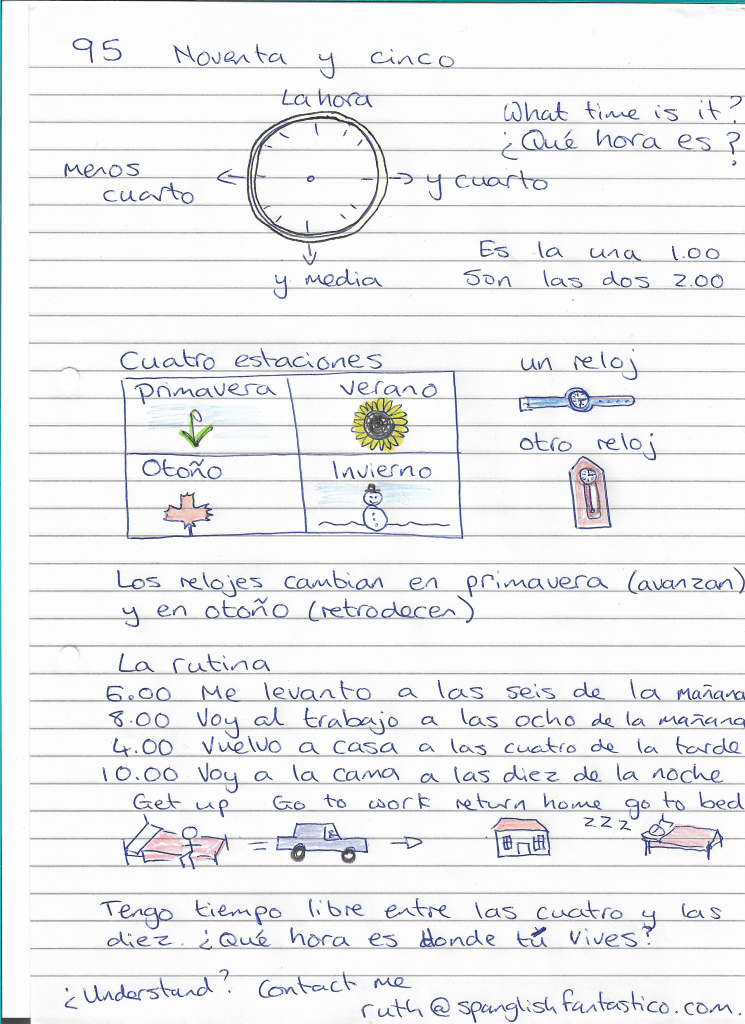 95 Noventa y cinco
La hora
What time is it?
¿Qué hora es?
menos
cuarto
y cuarto
y media
Es la una 1.00
Son las dos 2.00
Cuatro estaciones
Primavera
verano
Otoño
Invierno
un reloj
otro reloj
Los relojes cambian en primavera (avanzan)
y en otoño (retrodecen)
La rutina
6.00 Me levanto a las seis de la mañana
8.00 Voy al trabajo a las ocho de la mañana
4.00 Vuelvo a casa a las cuatro de la tarde
10.00 Voy a la cama a las diez de la noche
Get up Go to work return home go to bed
zzz
Tengo tiempo libre entre las cuatro y las
diez. ¿Qué hora es donde tú vives?
¿Understand? Contact me
ruth@spanglishfantastico.com.